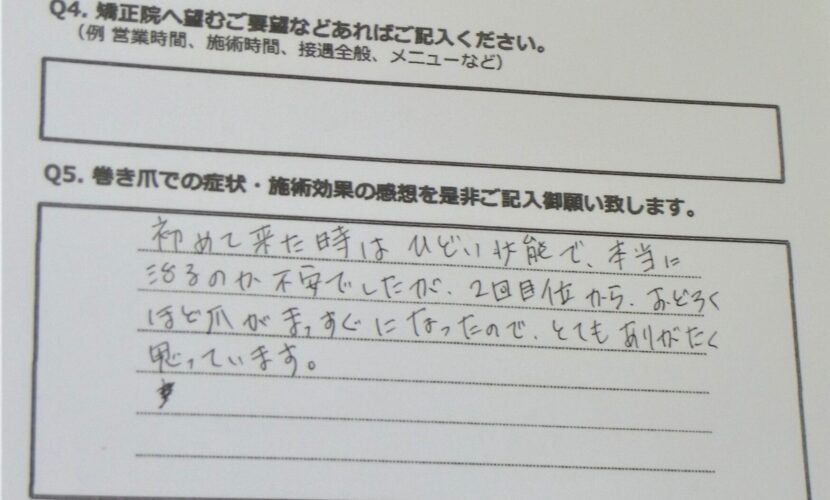 Q4. 矯正院へ望むご要望などあればご記入ください。
（例 営業時間、施術時間、接遇全般、メニューなど）
Q5. 巻き爪での症状・施術効果の感想を是非ご記入御願い致します。
初めて来た時は ひどい状態で、本当に
治るのか 不安でしたが、2回目位から、おどろく
ほど爪がまっすぐになったので、とてもありがたく
思っています。